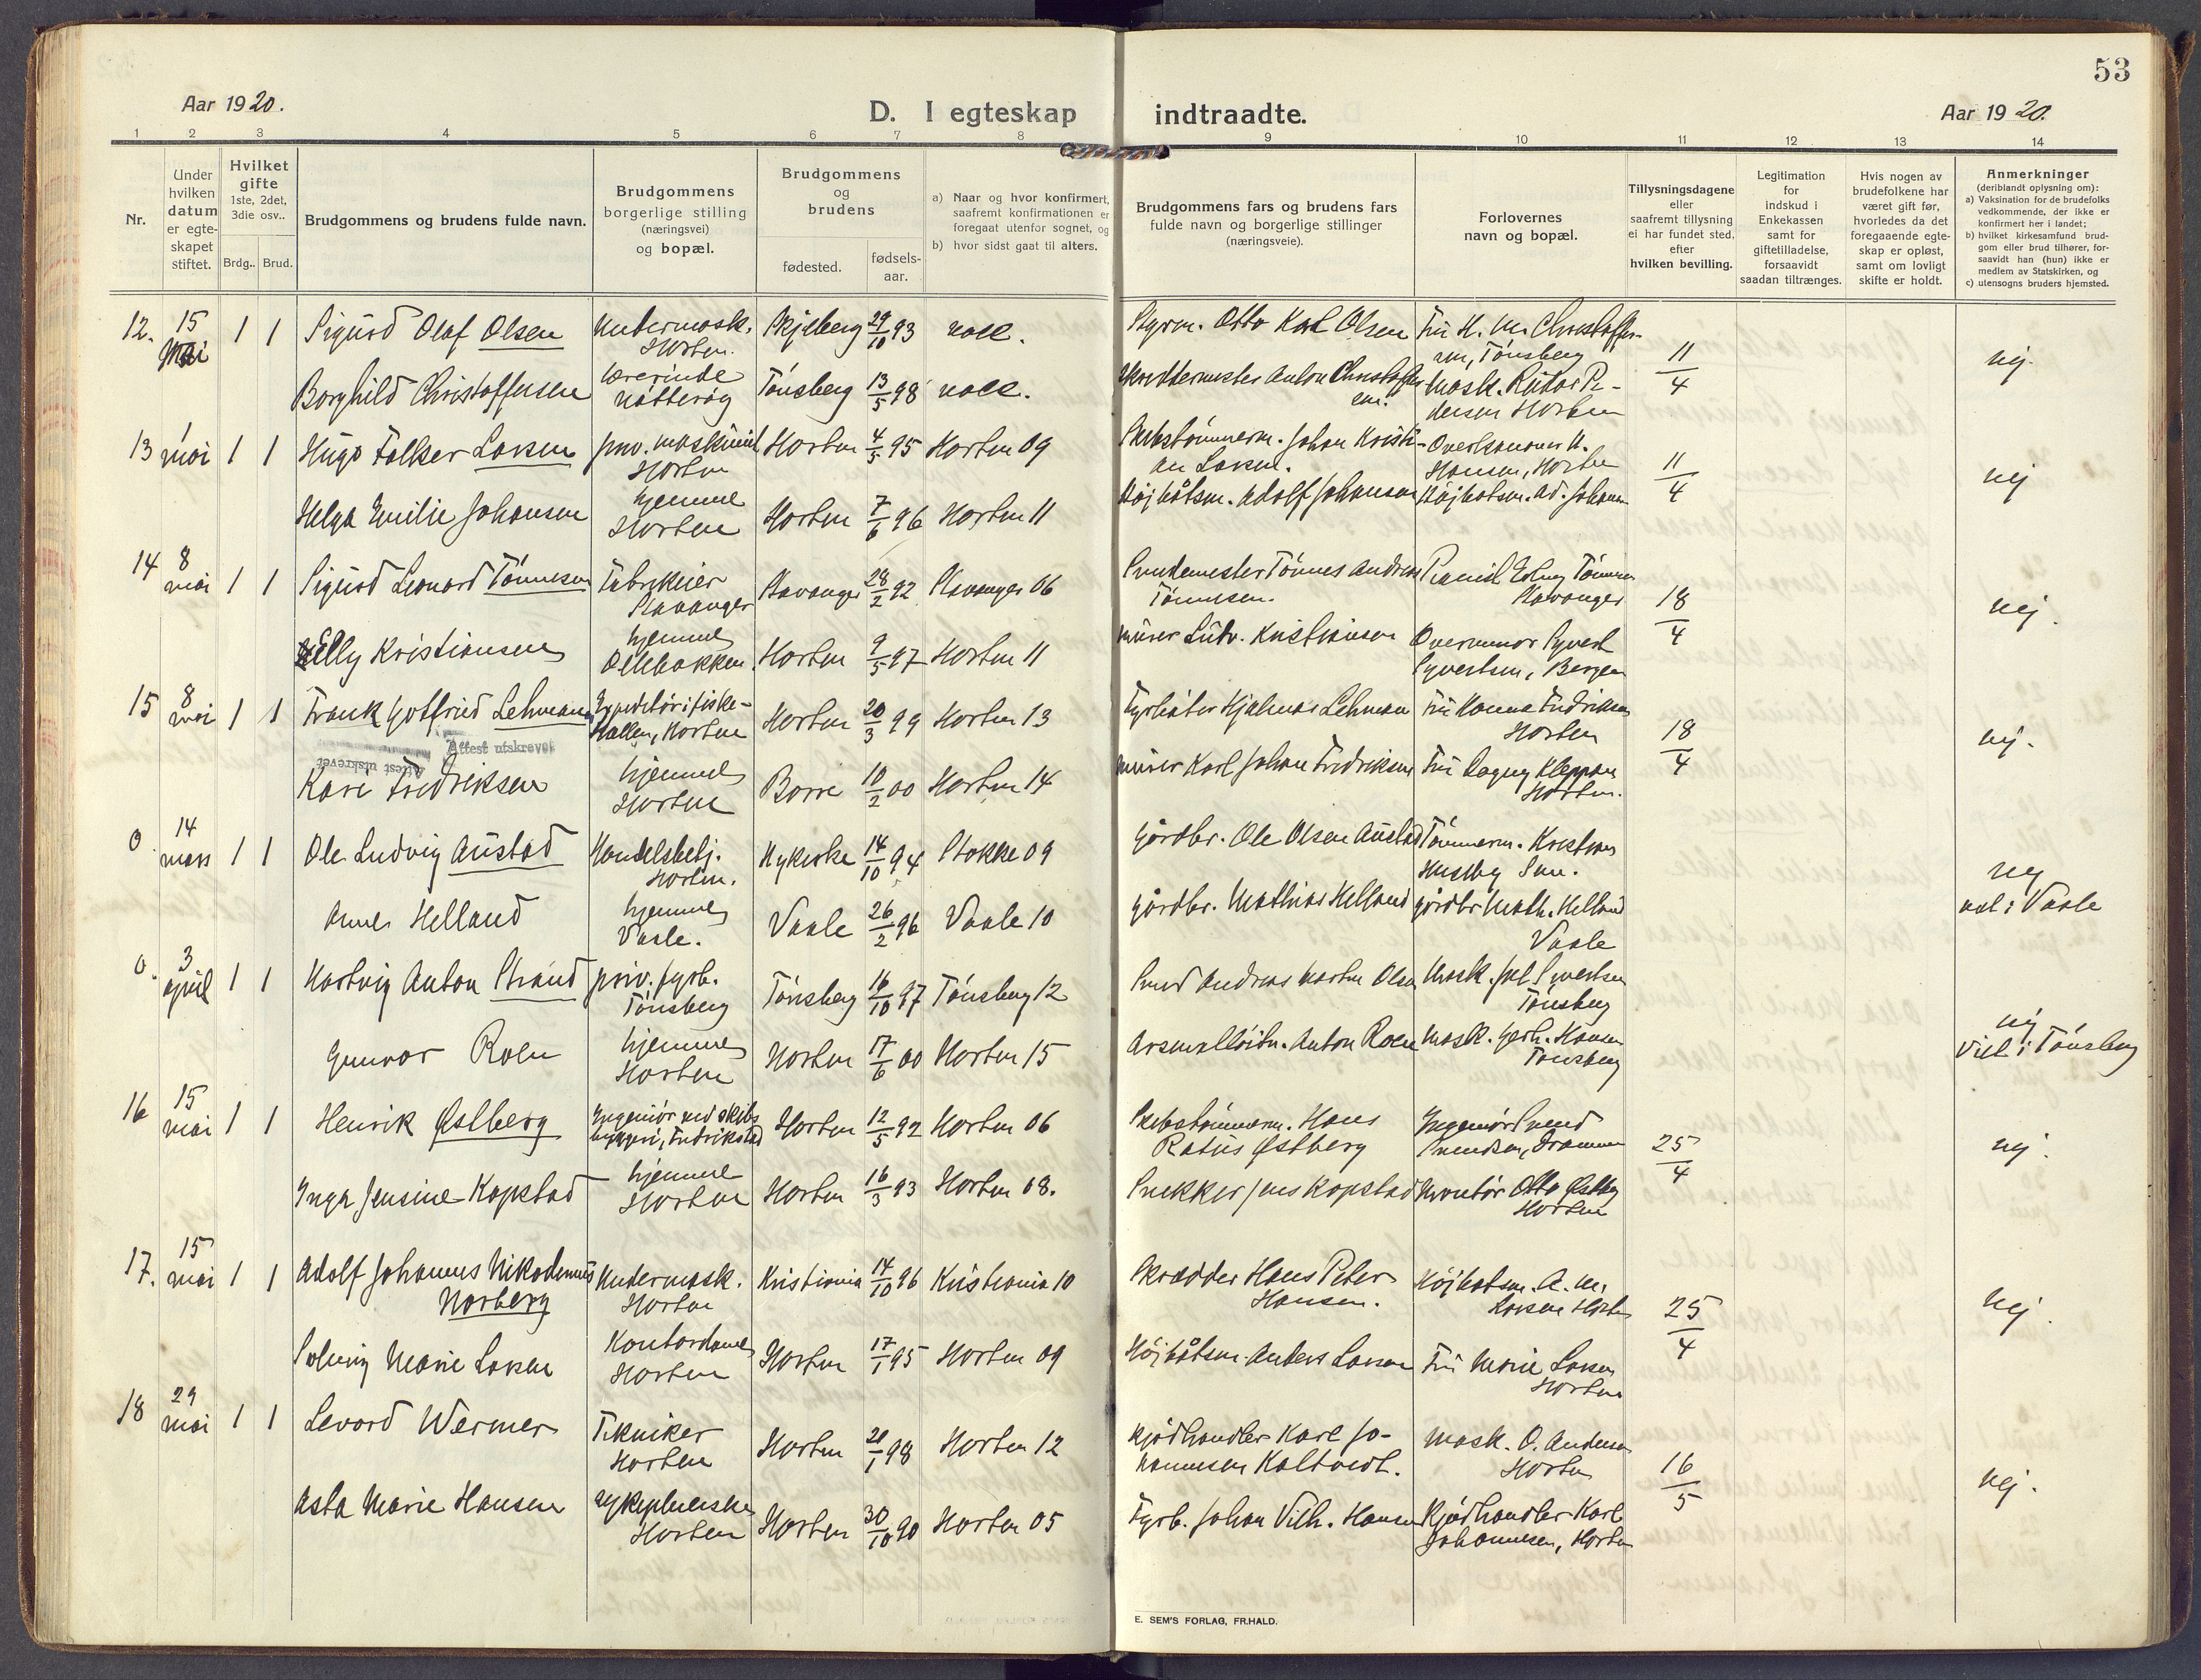 53
Aar 1920.
D. I egteskap indtraadte.
Aar 1920.
1 2 3 4 5 6 7 8 9 10 11 12 13 14
Nr.
Under
hvilken
datum
er egte-
skapet
stiftet.
Hvilket
gifte
1ste, 2det,
3die osv..
Brdg.. Brud.
Brudgommens og brudens fulde navn.
Brudgommens
borgerlige stilling
(næringsvei)
og bopæl.
Brudgommens
og
brudens
fødested.
fødsels-
aar.
a) Naar og hvor konfirmert,
saafremt konfirmationen er
foregaat utenfor sognet, og
b) hvor sidst gaat til alters.
Brudgommens fars og brudens fars
fulde navn og borgerlige stillinger
(næringsveie).
Forlovernes
navn og bopæl.
Tillysningsdagene
eller
saafremt tillysning
ei har fundet sted,
efter
hvilken bevilling.
Legitimation
for
indskud i
Enkekassen
samt for
giftetilladelse,
forsaavidt
saadan tiltrænges.
Hvis nogen av
brudefolkene har
været gift før,
hvorledes da det
foregaaende egte-
skap er opløst,
samt om lovligt
skifte er holdt.
Anmerkninger
(deriblandt oplysning om):
a) Vaksination for de brudefolks
vedkommende, der ikke er
konfirmert her i landet;
b) hvilket kirkesamfund brud-
gom eller brud tilhører, for-
saavidt han (hun) ikke er
medlem av Statskirken, og
c) utensogns bruders hjemsted.
12. 15 mai 1 1 Sigurd Olaf Olsen Undermask. Horten. Skjeberg 29/10 93 Styrm. Otto Karl Olsen Fru H. M. Christoffer-
sen, Tönsberg 11/4 nej.
Borghild Christoffersen lærerinde Nötteröy Tönsberg 13/5 98 Skreddermester Anton Christoffer
sen. Mask. Rütar Pe-
dersen Horten
13 1 mai 1 1 Hugo Folker Larsen priv. maskinist Horten Horten 4/5 95 Horten 09 Skibstömmerm. Johan Kristi-
an Larsen. Overkanoner
Hansen, Horten 11/4 nej
Helga Emilie Johansen hjemme Horten Horten 7/6 96 Horten 11 Höjbåtsm. Adolf Johansen Höjbotsm. Ad. Johansen
14 8 mai 1 1 Sigurd Leonard Tönnesen Fabrikeier Stavanger Stavanger 28/2 92 Stavanger 06 Smedemester Tönnes Andreas
Tönnesen. Pianist Tönnesen
Stavanger 18/4 nej.
Elly Kristiansen hjemme Ollebakken. Horten 9/5 97 Horten 11 Murer Ludv. Kristiansen Overminör Syvert
Syvertsen, Bergen
15 8 mai 1 1 Frank Gotfried Lehmann Expeditör i fiske-
hallen, Horten Horten 20/3 99 Horten 13 Fyrböter Hjalmar Lehman Fru Hanna Fredriksen
Horten 18/4 nej.
Attest utskrevet
Attest utskrevet
Kari Fredriksen hjemme Horten Borre 10/2 00 Horten 14 Murer Karl Johan Fredriksen Fru Dagny Kleppan
Horten.
0 14 mars 1 1 Ole Ludvig Austad Handelsbetj. Horten. Nykirke 14/10 94 Stokke 09 Gårdbr. Ole Olsen Austad Tömmerm. Kristian
Huseby Sem. nej
Anne Helland hjemme Vaale. Vaale 26/2 96 Vaale 10 Gårdbr. Mathias Helland gårdbr. Math. Helland
Vaale i Vaale
0. 3 april 1 1 Hartvig Anton Strand priv. fyrb. Tönsberg Tönsberg 16/10 97 Tönsberg 12 Smed Andreas Martin Olsen Mask. Syvertsen
Tönsberg nej
Gunvor Roen hjemme Horten Horten 17/6 00 Horten 15 Arsenallöitn. Anton Roen Mask. Gerh. Hansen
Tönsberg Viet i Tönsberg
16 15 mai 1 1 Henrik Østberg Ingeniör ved skibs
byggeri, Fredrikstad Horten 12/5 92 Horten 06 Skibstömmerm. Hans
Ratüs Østberg Ingeniör Svend
Svendsen, Drammen 25/4 nej.
Inga Jensine Kopstad hjemme Horten Horten 16/3 93 Horten 08. Snekker Jens Kopstad Montör Otto Østby
Horten
17. 15 mai 1 1 Adolf Johannes Nikodemus
Norberg Undermask. Horten Kristiania 14/10 96 Kristiania 10 Skrædder Hans Peter
Hansen. Höjbotsm. A. M.
Larsen Horten 25/4 nej.
Solveig Marie Larsen Kontordame Horten Horten 17/1 95 Horten 09 Höjbåtsm. Anders Larsen Fru Marie Larsen
Horten
18 29 mai 1 1 Levord Werner Tekniker Horten Horten 21/1 98 Horten 12 Kjödhandler Karl Jo-
hannesen Kaltvedt. Mask. O. Andersen
Horten 16/5 nej.
Asta Marie Hansen sykepleierske Horten Horten 30/10 90 Horten 05 Fyrb. Johan Vilh. Hansen Kjödhandler Karl
Johannesen, Horten
E. SEM'S FORLAG, FR.HALD.